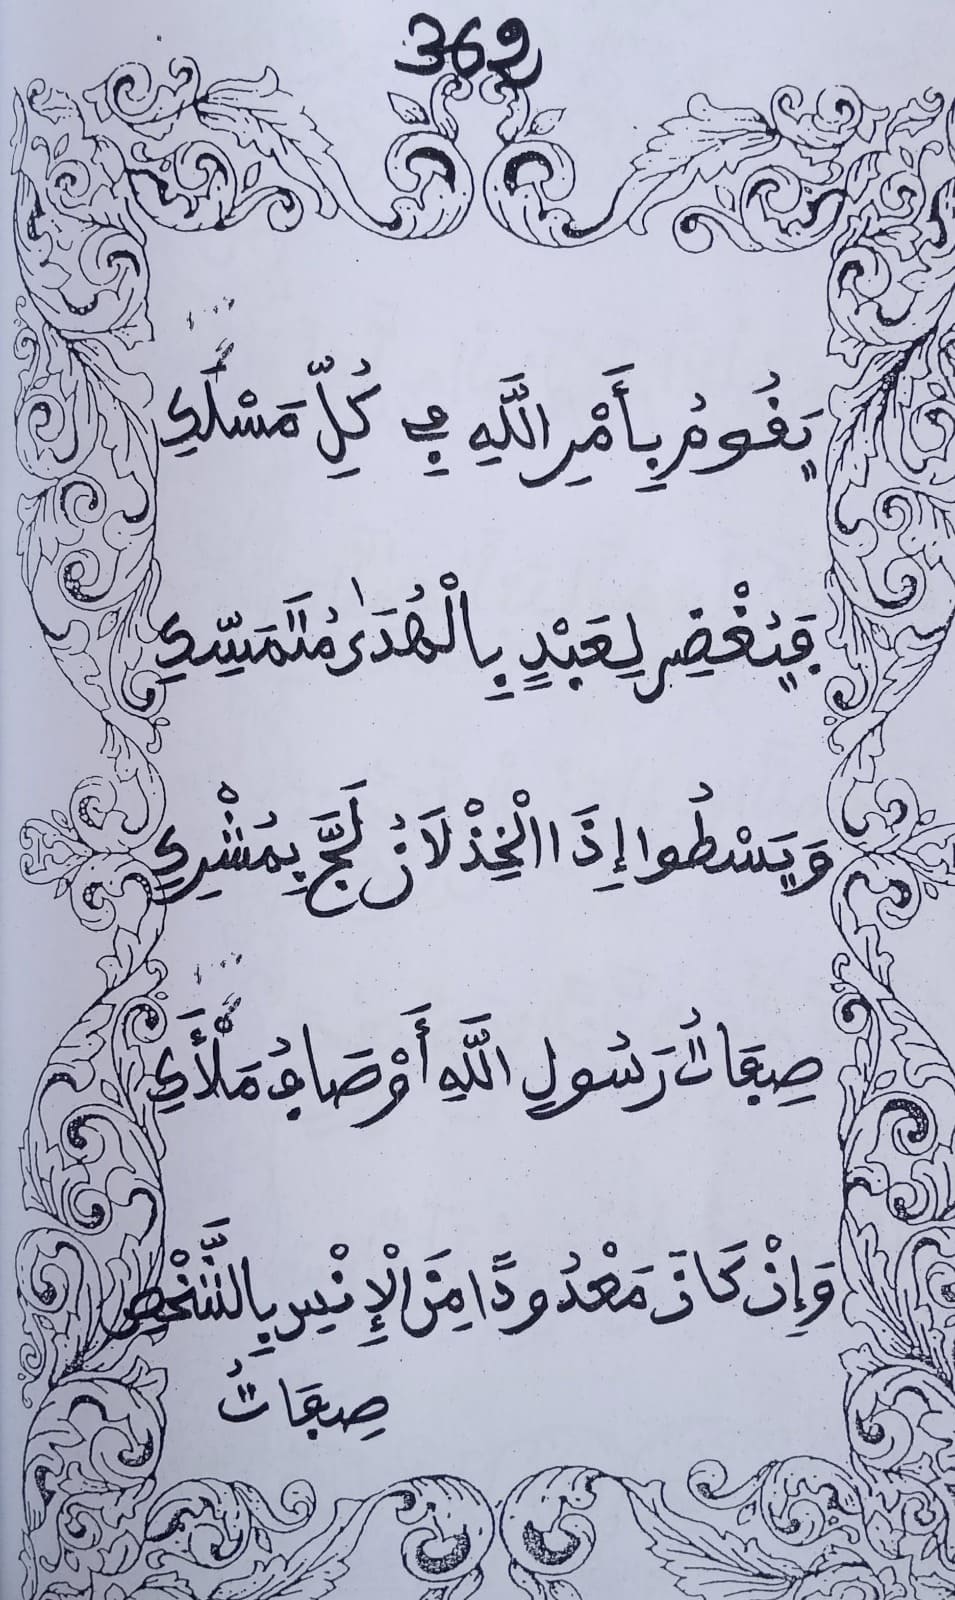 369
يَقُومُ بِأَمْرِ اللَّهِ فِي كُلِّ مَسْلَكِ
فَيُغْضِ لِعَبْدٍ بِالْهُدَىٰ مُتَمَسِّكِ
وَيَسْطُوا إِذَا الْخِذْلَانُ لَجَّ بِمُشْرِكِ
صِفَاتُ رَسُولِ اللَّهِ أَوْصَافُ مَلْأَكِ
وَإِنْ كَانَ مَعْدُودًا مِنَ الْإِنْسِ بِالشَّخْصِ
صِفَاتُ